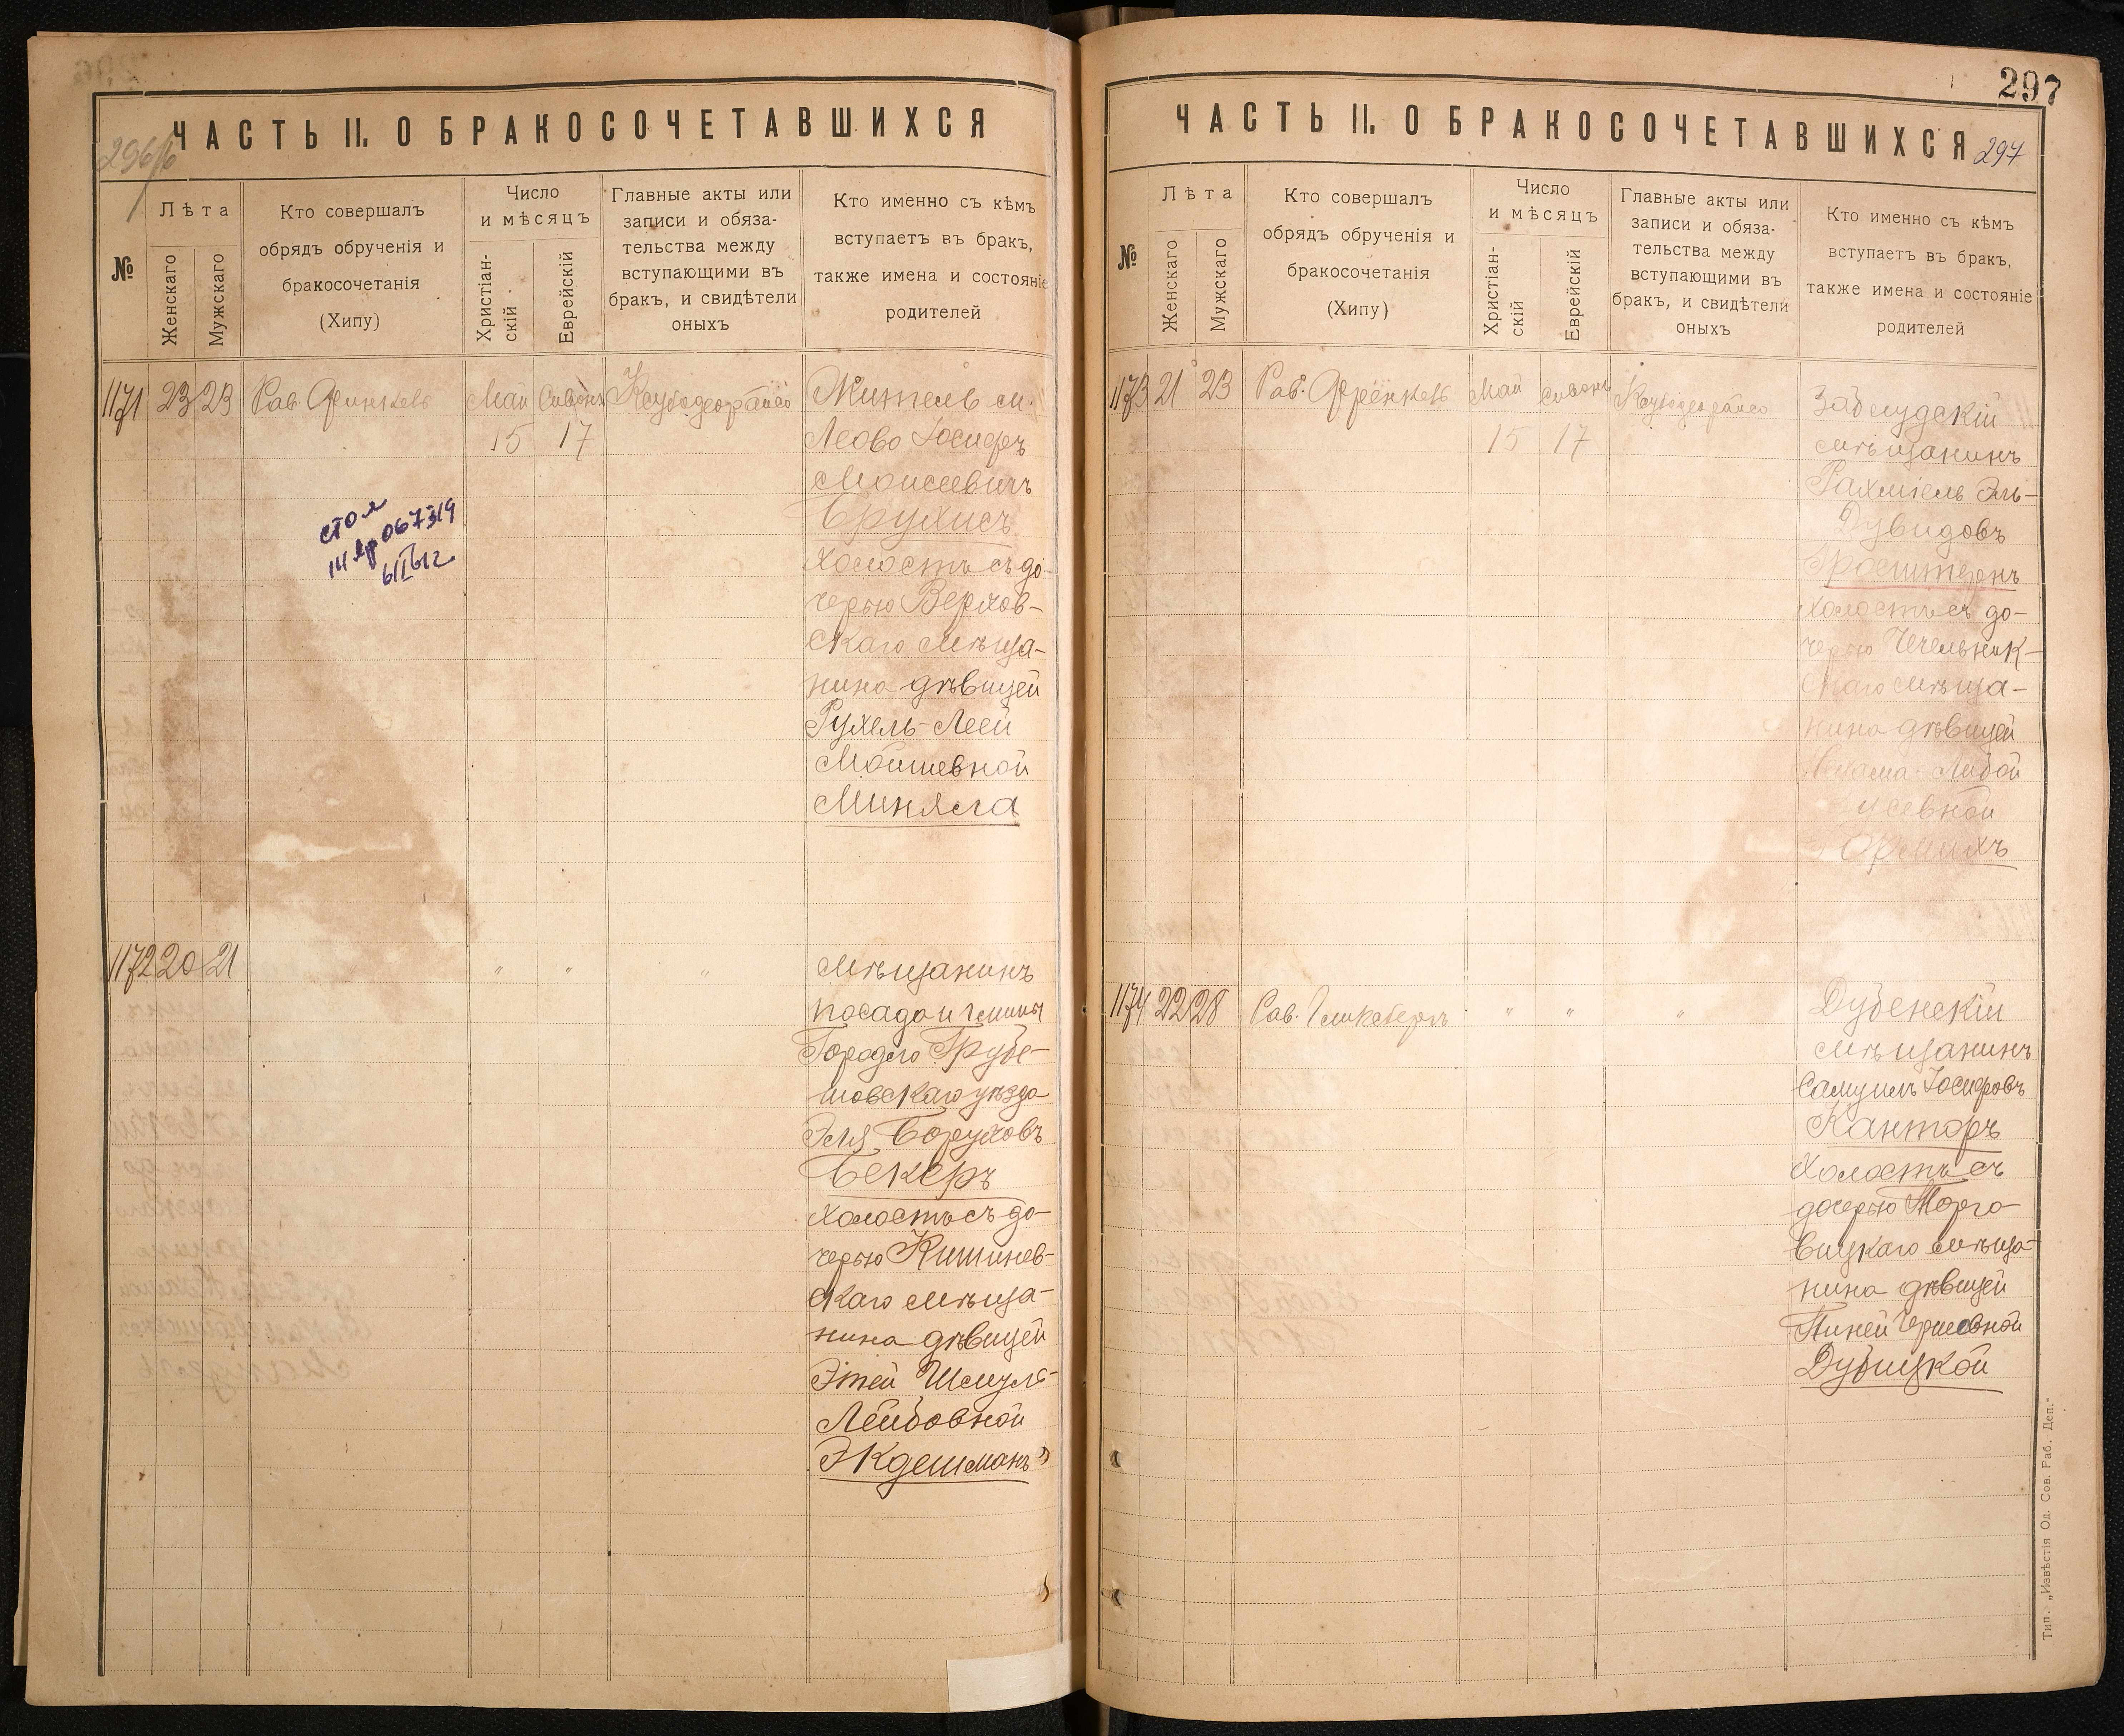 ЧАСТЬ II. О БРАКОСОЧЕТАВШИХСЯ
№
Лѣта
Женскаго
Мужскаго
Кто совершалъ
обрядъ обрученія и
бракосочетанія
(Хипу)
Число
и мѣсяцъ
Христіан-
скій
Еврейскій
Главные акты или
записи и обяза-
тельства между
вступающими въ
бракъ, и свидѣтели
оныхъ
Кто именно съ кѣмъ
вступаетъ въ бракъ,
также имена и состояніе
родителей
1171 23 23 Рав. Май Сивонъ
15 17
Житель м.
Леово Іосифъ
Моисеевичъ
Брухисъ
холостъ съ до-
черью Верхов-
скаго мѣща-
нина дѣвицей
Рухель-Леей
Мошевной
Миняга
стол
067319
1172 20 21 " " "
Мѣщанинъ
посада и гмины
Городло Грубе-
шовскаго уѣзда
Эля Борухов
Бекеръ
холостъ съ до-
черью Кишинев-
скаго мѣща-
нина дѣвицей
Этей Шмуль-
Лейбовной
Экдешманъ
297
ЧАСТЬ II. О БРАКОСОЧЕТАВШИХСЯ
297
№
Лѣта
Женскаго
Мужскаго
Кто совершалъ
обрядъ обрученія и
бракосочетанія
(Хипу)
Число
и мѣсяцъ
Христіан-
скій
Еврейскій
Главные акты или
записи и обяза-
тельства между
вступающими въ
бракъ, и свидѣтели
оныхъ
Кто именно съ кѣмъ
вступаетъ въ бракъ,
также имена и состояніе
родителей
1173 21 23 Рав. Май Сивонъ
15 17
Заблудскій
мѣщанинъ
Рахміель Эль-
Дувидовъ
холостъ съ до-
черью Чечельник-
скаго мѣща-
нина дѣвицей
1174 22 28 Рав. Гликсбергъ " " "
Дубенскій
мѣщанинъ
Самуилъ Іосифовъ
Канторъ
холостъ съ
дочерью Торго-
вицкаго мѣща-
нина дѣвицей
Дубицкой
Тип. „Извѣстія Од. Сов. Раб. Деп."